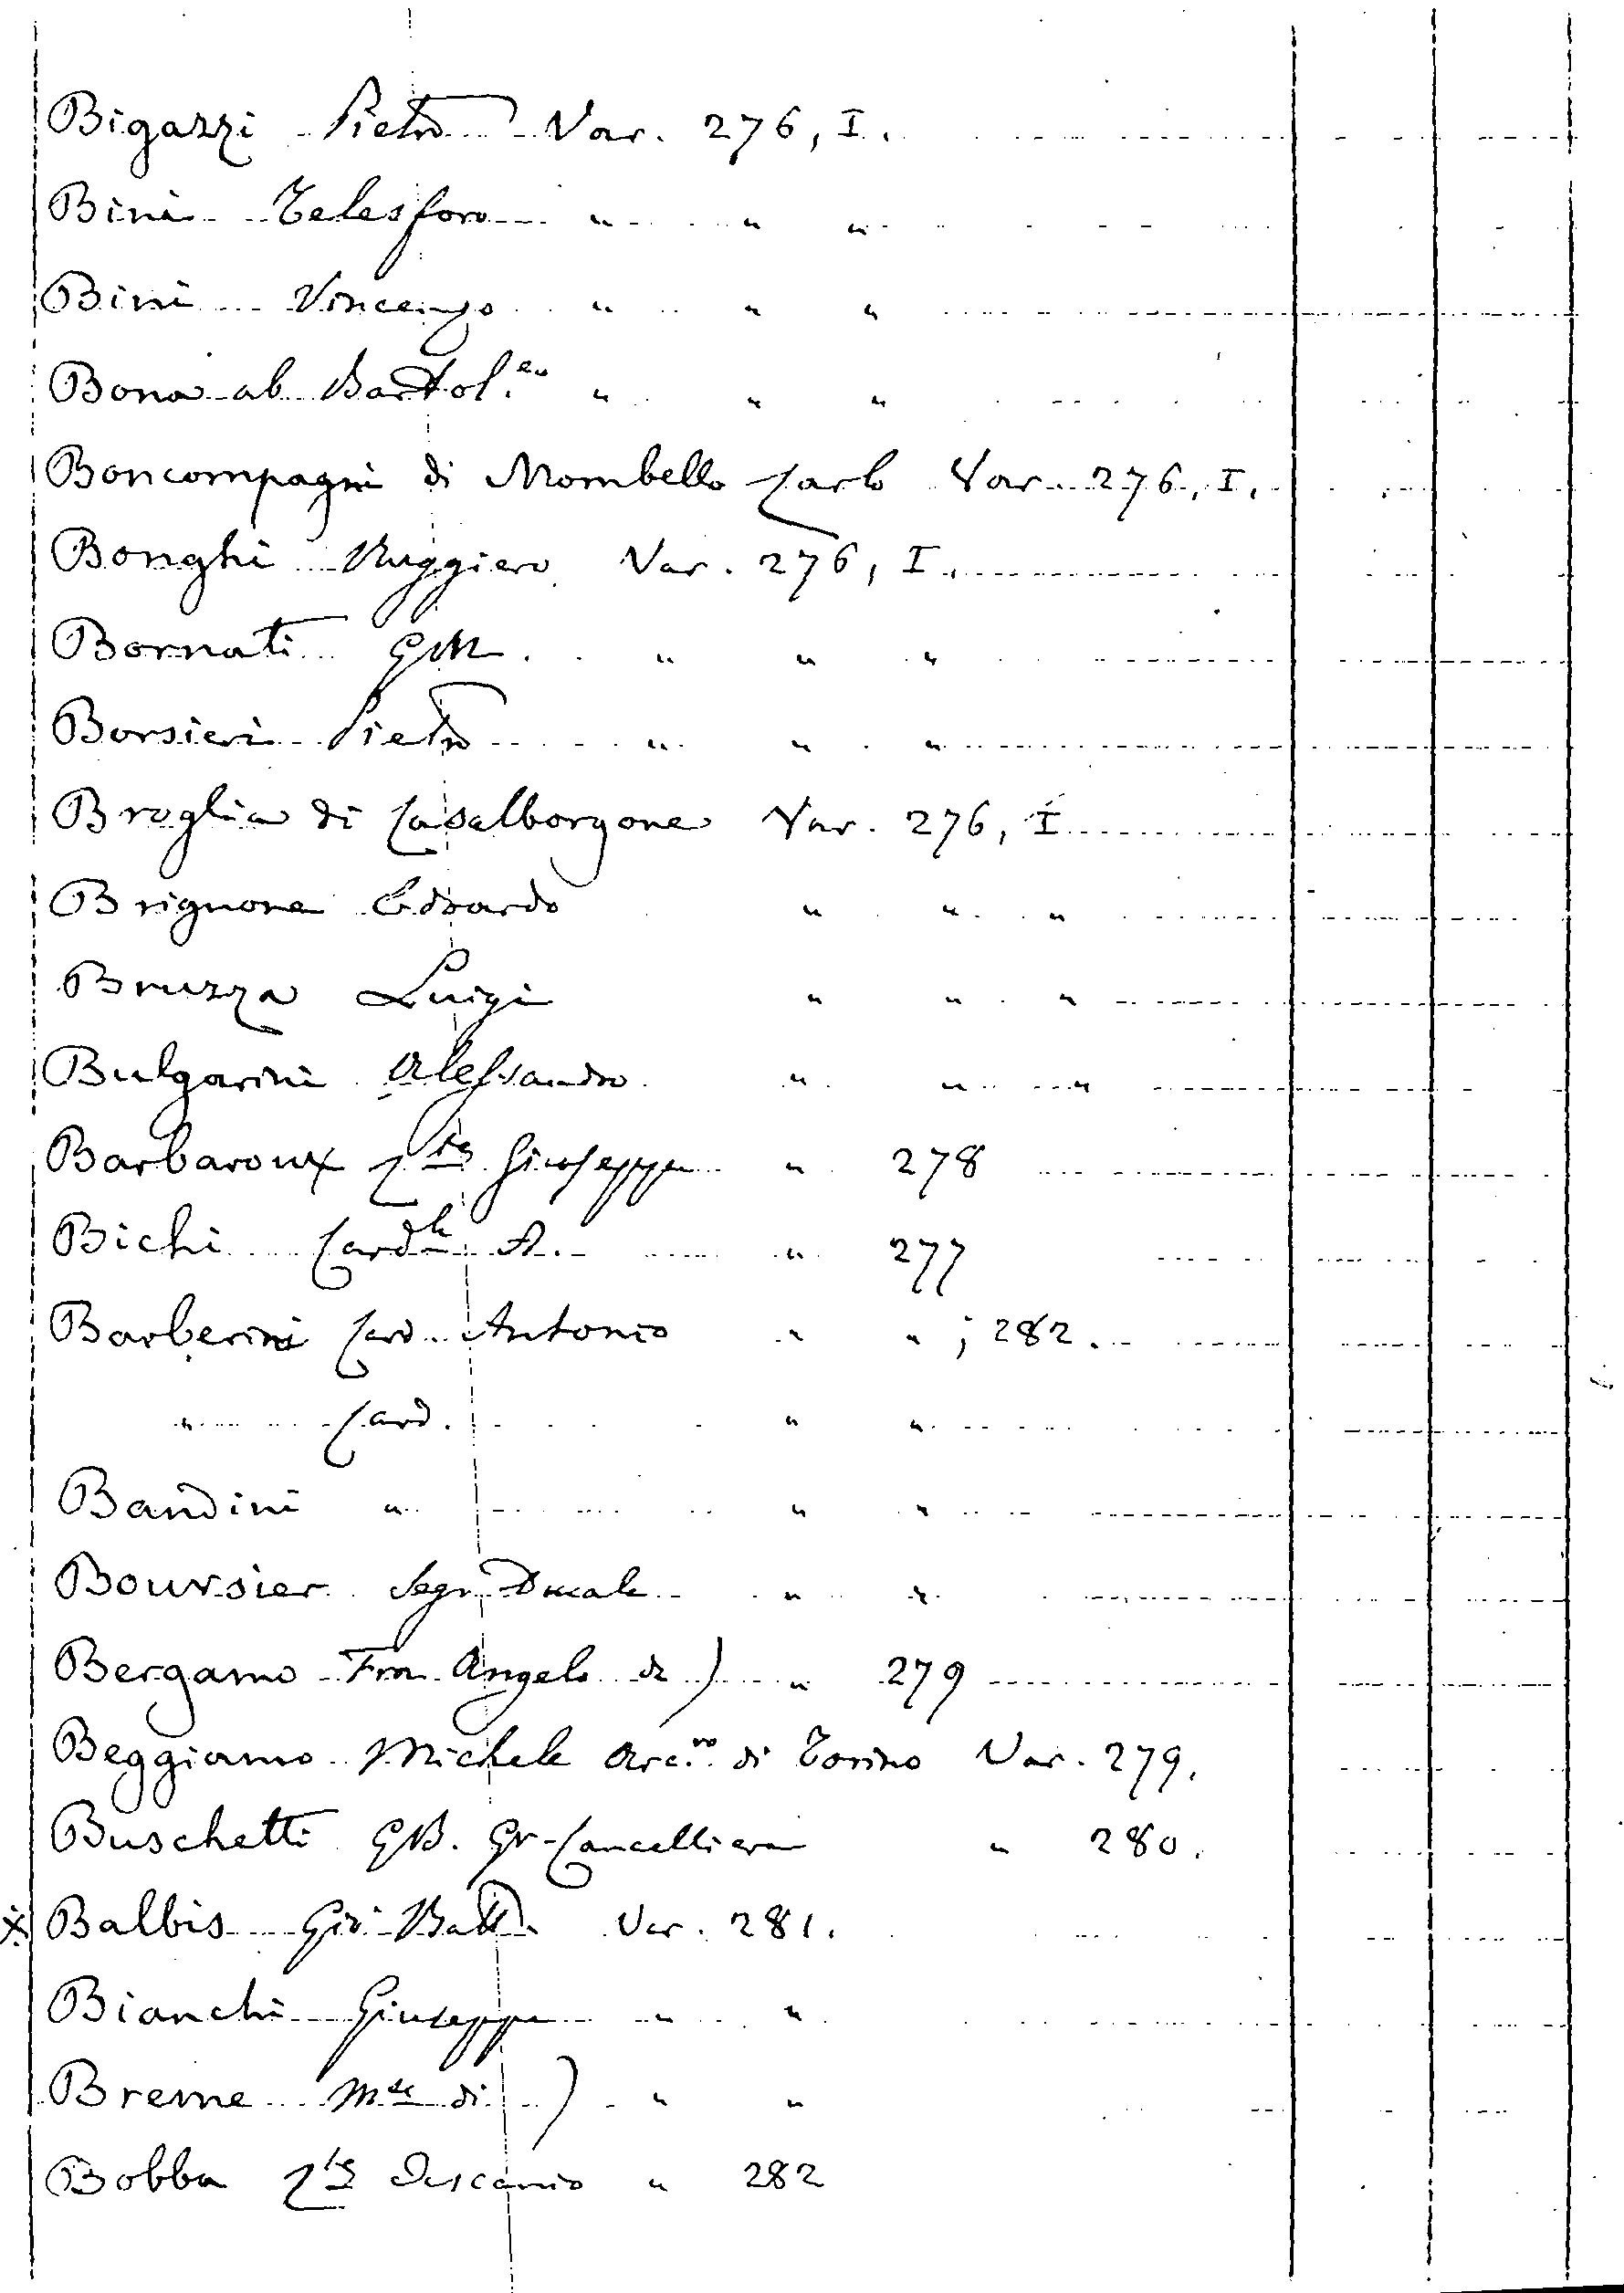 Bigazzi Pietro Var. 276, I.
Bini Telesforo " " "
Bini Vincenzo " " "
Bona ab Bartol.eo " " "
Boncompagni di Mombello Carlo Var. 276, I.
Bonghi Ruggiero Var. 276, I.
Bornati G M. " " "
Borsieri Pietro " " "
Broglia di Casalborgone Var. 276, I
Brignone Edoardo " " "
Bruzza Luigi " " "
Bulgarini Alessandro " " "
Barbaroux Cte Giuseppe " 278
Bichi Cardle A. " 277
Barberini Card. Antonio " " ; 282.
" Card. " "
Bandini " " "
Boursier Segr. Ducale " "
Bergamo Fra Angelo da) " 279
Beggiamo Michele Arc.vo di Torino Var. 279.
Buschetti GB. Gr-Cancelliere " 280.
x Balbis Gio Batta Var. 281.
Bianchi Giuseppe " "
Breme Mse di) " "
Bobba Cte Ascanio " 282